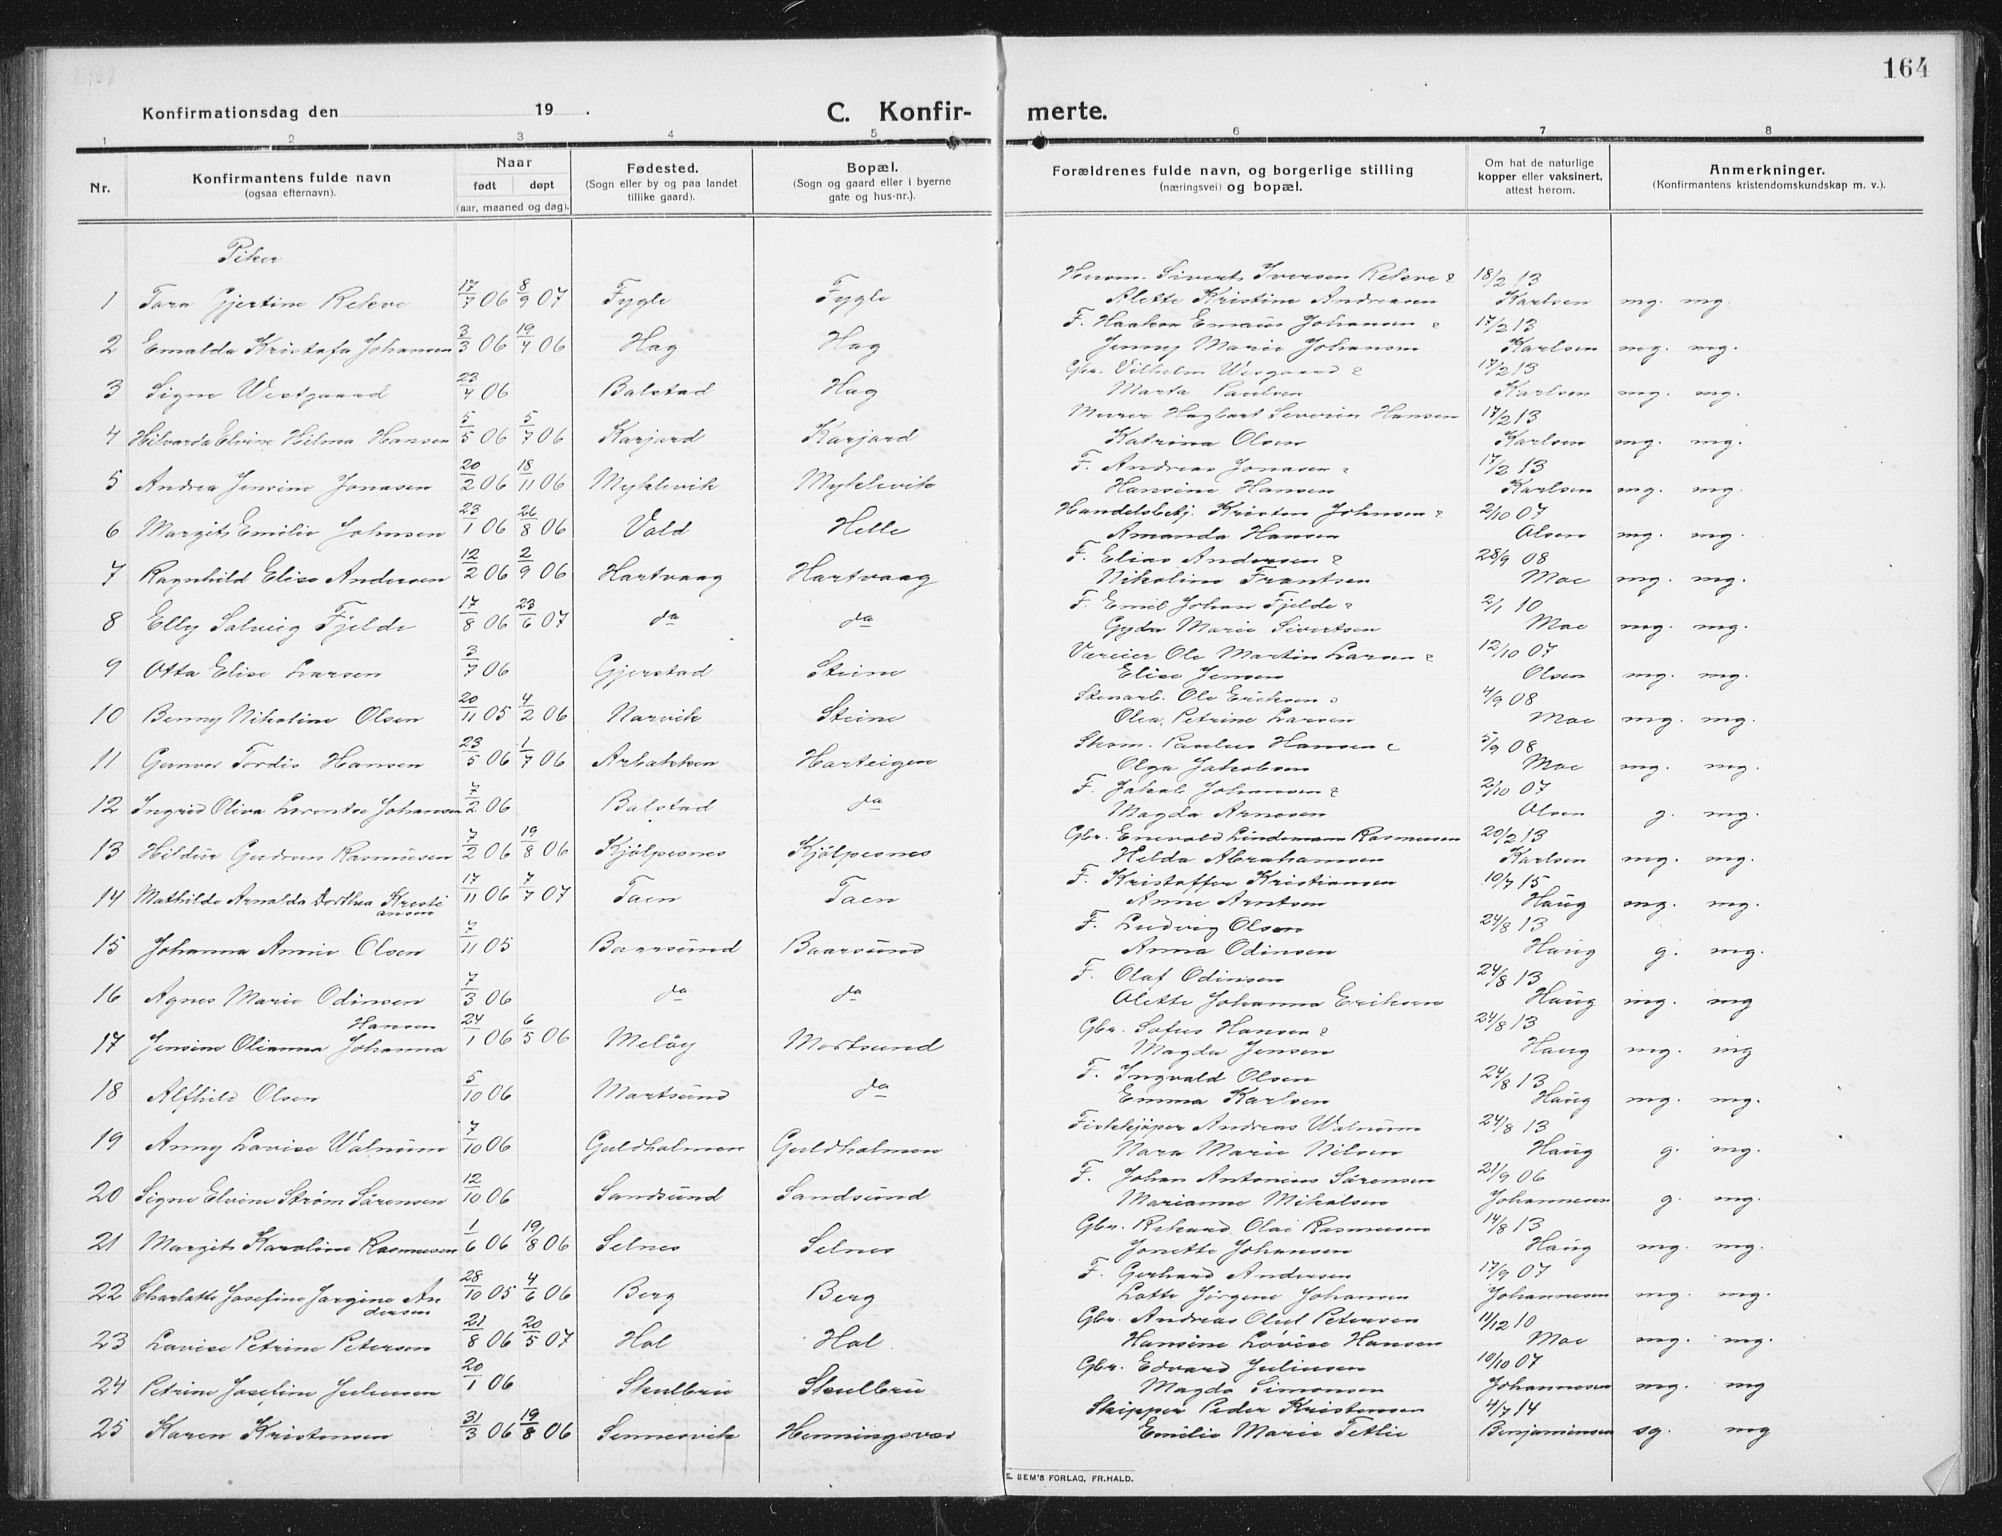 164
Konfirmationsdag den 19 .
C. Konfirmerte.
1 2 3 4 5 6 7 8
Nr.
Konfirmantens fulde navn
(ogsaa efternavn).
Naar
født døpt
(aar, maaned og dag).
Fødested.
(Sogn eller by og paa landet
tillike gaard).
Bopæl.
(Sogn og gaard eller i byerne
gate og hus-nr.).
Forældrenes fulde navn, og borgerlige stilling
(næringsvei) og bopæl.
Om hat de naturlige
kopper eller vaksinert,
attest herom.
Anmerkninger.
(Konfirmantens kristendomskundskap m. v.).
Piker
Husm. Sivert Iversen Rekve & 18/2 13
1 Tora Gjertine Rekve 17/7 06 8/9 07 Fygle Fygle Alette Kristine Andreasen Karlsen mg. mg.
F. Haakon Emaus Johansen & 17/2 13
2 Emalda Kristofa Johansen 3/3 06 19/4 06 Hag Hag Jenny Marie Johansen Karlsen mg. mg.
Gbr. Vilhelm Wesgaard & 17/2 13
3 Signe Westgaard 23/4 06 Balstad Hag Marta Paulsen Karlsen mg. mg.
Murer Hagbart Severin Hansen 17/2 13
4 Hilvarda Elvine Hilma Hansen 5/5 06 5/7 06 Karjord Karjord Katrina Olsen Karlsen mg. mg.
F. Andreas Jonasen & 17/2 13
5 Andrea Jensine Jonasen 20/2 06 18/11 06 Myklevik Myklevik Hansine Hansen Karlsen mg. mg.
Handelsbetj. Kristen Johnsen & 2/10 07
6 Margit Emilie Johnsen 23/1 06 26/8 06 Vold Helle Amanda Hansen Olsen mg. mg.
F. Elias Andersen & 28/9 08
7 Ragnhild Elise Andersen 12/2 06 2/9 06 Hartvaag Hartvaag Nikoline Frantsen Moe mg. mg.
F. Emil Johan Fjelde & 2/1 10
8 Elly Solveig Fjelde 17/8 06 23/6 07 do do Gyda Marie Sivertsen Moe mg. mg.
Væreier Ole Martin Larsen & 12/10 07
9 Otta Elise Larsen 3/7 06 Gjerstad Steine Elise Jensen Olsen mg. mg.
Stenarb. Ole Eriksen & 4/9 08
10 Benny Nikoline Olsen 20/11 05 4/2 06 Narvik Steine Olea Petrine Larsen Moe mg. mg.
Skom. Paulus Hansen & 5/9 08
11 Gunvor Tordis Hansen 23/5 06 1/7 06 Arbakken Harteigen Olga Jakobsen Moe mg. mg.
F. Jakob Johansen & 2/10 07
12 Ingrid Oliva Lorentse Johansen 7/2 06 Balstad do Magda Arnesen Olsen g. mg.
Gbr. Enevold Lindemann Rasmussen 20/2 13
13 Hildur Gudrun Rasmusen 7/2 06 19/8 06 Kjølpesnes Kjølpesnes Helda Abrahamsen Karlsen mg. mg.
F. Kristoffer Kristiansen 10/7 15
14 Mathilde Arnolda Dorthea Kristiansen 17/11 06 7/7 07 Taen Taen Anne Arntsen Haug mg. mg.
F. Ludvig Olsen 24/8 13
15 Johanna Annie Olsen 7/11 05 Baarsund Baarsund Anna Odinsen Haug g. mg.
F. Olaf Odinsen 24/8 13
16 Agnes Marie Odinsen 7/3 06 do do Alette Johanna Eriksen Haug mg. mg
Hansen Gbr. Sofus Hansen & 24/8 13
17 Jensine Olianna Johanna 24/1 06 6/5 06 Meløy Mortsund Magda Jensen Haug mg. mg
F. Ingvald Olsen 24/8 13
18 Alfhild Olsen 5/10 06 Mortsund do Emma Karlsen Haug mg. mg.
Fiskekjøper Andreas Walnum 24/8 13
19 Anny Lovise Walnum 7/10 06 Guldholmen Guldholmen Nora Marie Nilsen Haug g. mg.
F. Johan Antonius Sørensen 21/9 06
20 Signe Elvine Strøm Sørensen 12/10 06 Sandsund Sandsund Marianne Mikalsen Johannesen g. mg.
Gbr. Rikard Olai Rasmusen 14/8 13
21 Margit Karoline Rasmusen 1/6 06 19/8 06 Selnes Selnes Jonette Johansen Haug mg. mg.
F. Gerhard Andersen 17/9 07
22 Charlotte Josefine Jørgine Andersen 28/10 05 4/6 06 Berg Berg Lotte Jørgene Johansen Johannesen mg. mg.
Gbr. Andreas Oluf Petersen 11/12 10
23 Lovise Petrine Petersen 21/8 06 20/5 07 Hol Hol Hansine Lovise Hansen Moe mg. mg.
Gbr. Edvard Juliusen 10/10 07
24 Petrine Josefine Juliusen 20/1 06 Skulbru Skulbru Magda Simonsen Johannesen mg. mg
Skipper Peder Kristensen 4/7 14
25 Karen Kristensen 31/3 06 19/8 06 Sennesvik Henningsvær Emilie Marie Tetlie Benjaminsen sg. mg
E. SEM'S FORLAG, FR.HALD.